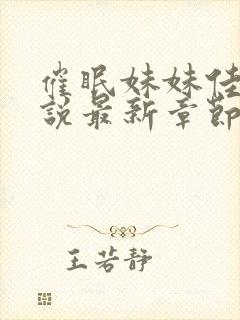 催眠妹妹佳
說最新章節
王若静